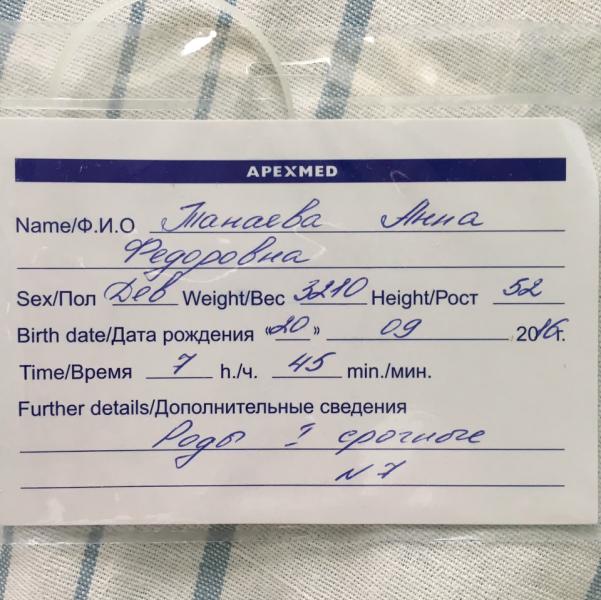 APEXMED
Name/Ф.И.О Танаева Анна
Федоровна
Sex/Пол Дев Weight/Вес 3210 Height/Рост 52
Birth date/Дата рождения «20» 09 2016г.
Time/Время 7 h./ч. 45 min./мин.
Further details/Дополнительные сведения
Роды I срочные
N 7